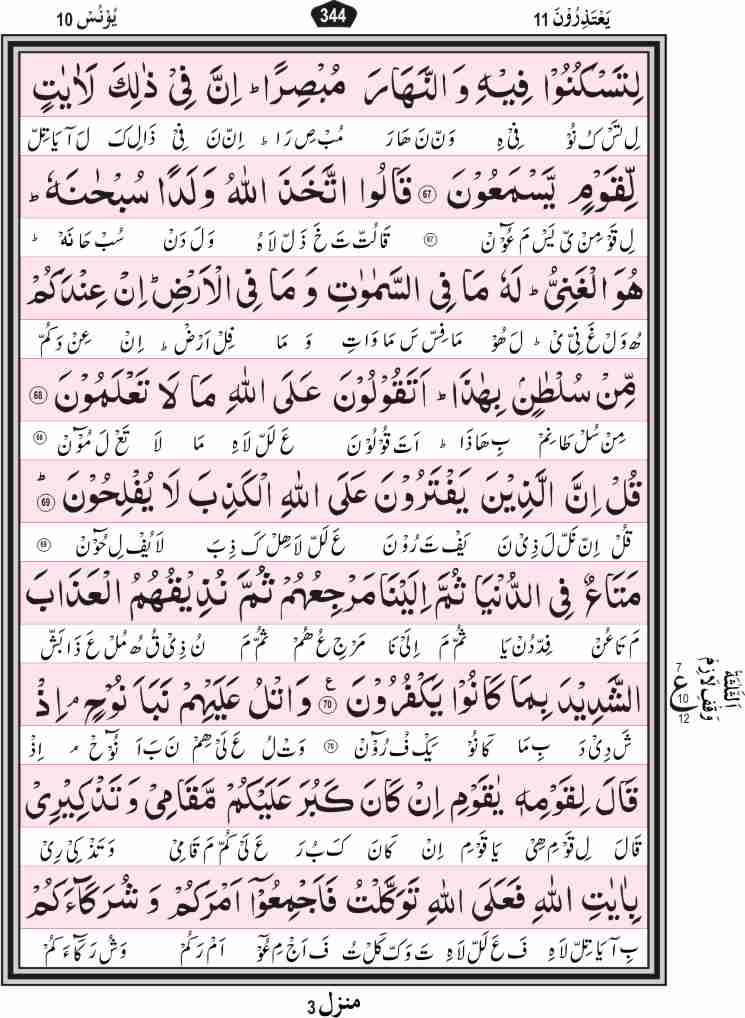 یَعْتَذِرُوْنَ 11
344
یُوْنُسْ 10
لِتَسْكُنُوْا فِیْهِ وَ النَّهَارَ مُبْصِرًاؕ اِنَّ فِیْ ذٰلِكَ لَاٰیٰتٍ
لِ تَسْ كُ نُوْ فِیْ ہِ وَ نْ نَ هَا رَ مُبْ صِ رَا ؕ اِنْ نَ فِیْ ذَالِ كَ لَ آ یَا تِلّ
لِّقَوْمٍ یَّسْمَعُوْنَ ۶۷ قَالُوا اتَّخَذَ اللّٰهُ وَلَدًا سُبْحٰنَهٗؕ
لِ قَوْ مِنْ یَ یَسْ مَ عُوْٓ نْ ۶۷ قَالُتْ تَ خَ ذَلّ لَا ہُ وَ لَ دَنْ سُبْ حَا نَهْٗ ؕ
هُوَ الْغَنِیُّؕ لَهٗ مَا فِی السَّمٰوٰتِ وَ مَا فِی الْاَرْضِؕ اِنْ عِنْدَكُمْ
هُ وَلْ غَ نِیْ یْ ؕ لَ هُوْ مَا فِسّ سَ مَا وَاتِ وَ مَا فِلْ اَرْضْ ؕ اِنْ عِنْ دَ كُمْ
مِّنْ سُلْطٰنٍۭ بِهٰذَاؕ اَتَقُوْلُوْنَ عَلَی اللّٰهِ مَا لَا تَعْلَمُوْنَ ۶۸
مِنْ سُلْ طَا نِمْ بِ هَا ذَا ؕ اَ تَ قُوْلُوْنَ عَ لَلّ لَا ہِ مَا لَا تَعْ لَ مُوْٓنْ ۶۸
قُلْ اِنَّ الَّذِیْنَ یَفْتَرُوْنَ عَلَی اللّٰهِ الْكَذِبَ لَا یُفْلِحُوْنَؕ ۶۹
قُلْ اِنْ نَلّ لَ ذِیْ نَ یَفْ تَ رُوْ نَ عَ لَلّ لَا هِلْ كَ ذِبَ لَا یُفْ لِ حُوْٓنْ ۶۹
مَتَاعٌ فِی الدُّنْیَا ثُمَّ اِلَیْنَا مَرْجِعُهُمْ ثُمَّ نُذِیْقُهُمُ الْعَذَابَ
مَ تَا عُنْ فِدّ دُنْ یَا ثُمّ مَ اِلَیْ نَا مَرْ جِ عُ هُمْ ثُمّ مَ نُ ذِیْ قُ هُ مُلْ عَ ذَا بَشّ
الشَّدِیْدَ بِمَا كَانُوْا یَكْفُرُوْنَ ۷۰ ع وَاتْلُ عَلَیْهِمْ نَبَاَ نُوْحٍ ۘ اِذْ
شَ دِیْ دَ بِ مَا كَا نُوْ یَكْ فُ رُوْٓنْ ۷۰ وَتْ لُ عَ لَیْ هِمْ نَ بَ اَ نُوْٓحْ مـ اِذْ
7
ع
10
12
وَقْفِ لَازِمْ
قَالَ لِقَوْمِهٖ یٰقَوْمِ اِنْ كَانَ كَبُرَ عَلَیْكُمْ مَّقَامِیْ وَ تَذْكِیْرِیْ
قَالَ لِ قَوْ مِهِیْ یَا قَوْمِ اِنْ كَانَ كَ بُ رَ عَ لَیْ كُمّ مَ قَا مِیْ وَ تَذْ كِیْ رِیْ
بِاٰیٰتِ اللّٰهِ فَعَلَی اللّٰهِ تَوَكَّلْتُ فَاَجْمِعُوْۤا اَمْرَكُمْ وَ شُرَكَآءَكُمْ
بِ آ یَا تِلّ لَا ہِ فَ عَ لَلّ لَا ہِ تَ وَكّ كَلْ تُ فَ اَجْ مِ عُوْٓ اَمْ رَ كُمْ وَ شُ رَ كَآءَ كُمْ
منزل 3